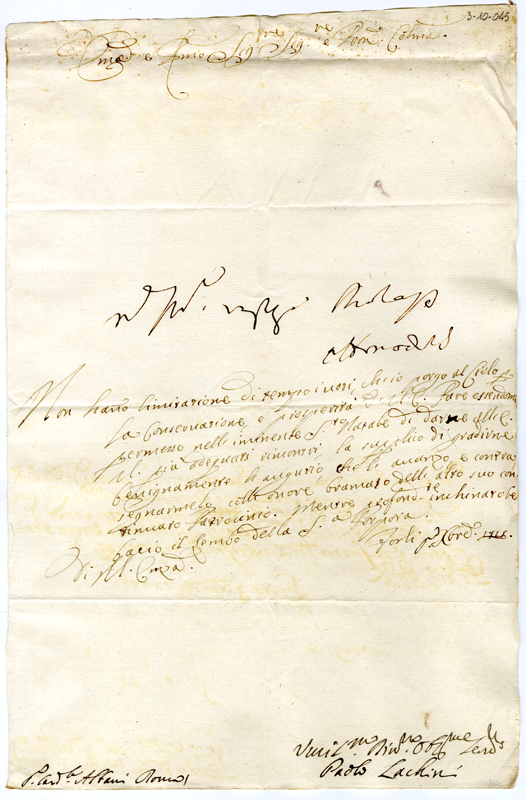 3-10-045
Em.mo e Rmo Sig.re Sig.re e Pron. Colmo.
Non hanno limitazione di tempo i voti che io porgo al Cielo p
la Conservazione, e prosperità di V. E. Pure essendomi
permesso nell'imminente S. Natale di darne all' E.
V. più adequati riscontri, la supplico di gradirne
benignamente l'augurio, che le avanzo, e contra
segnarmelo coll'onore bramato dell'alto suo con
tinuato Patrocinio. Mentre profond.te inchinatole
bacio il lembo della S.a Porpora.
Di V. Emza. Forlì
Vmil.mo Div.mo Obg.mo
Paolo Lachini
S. Card.le Albani Roma